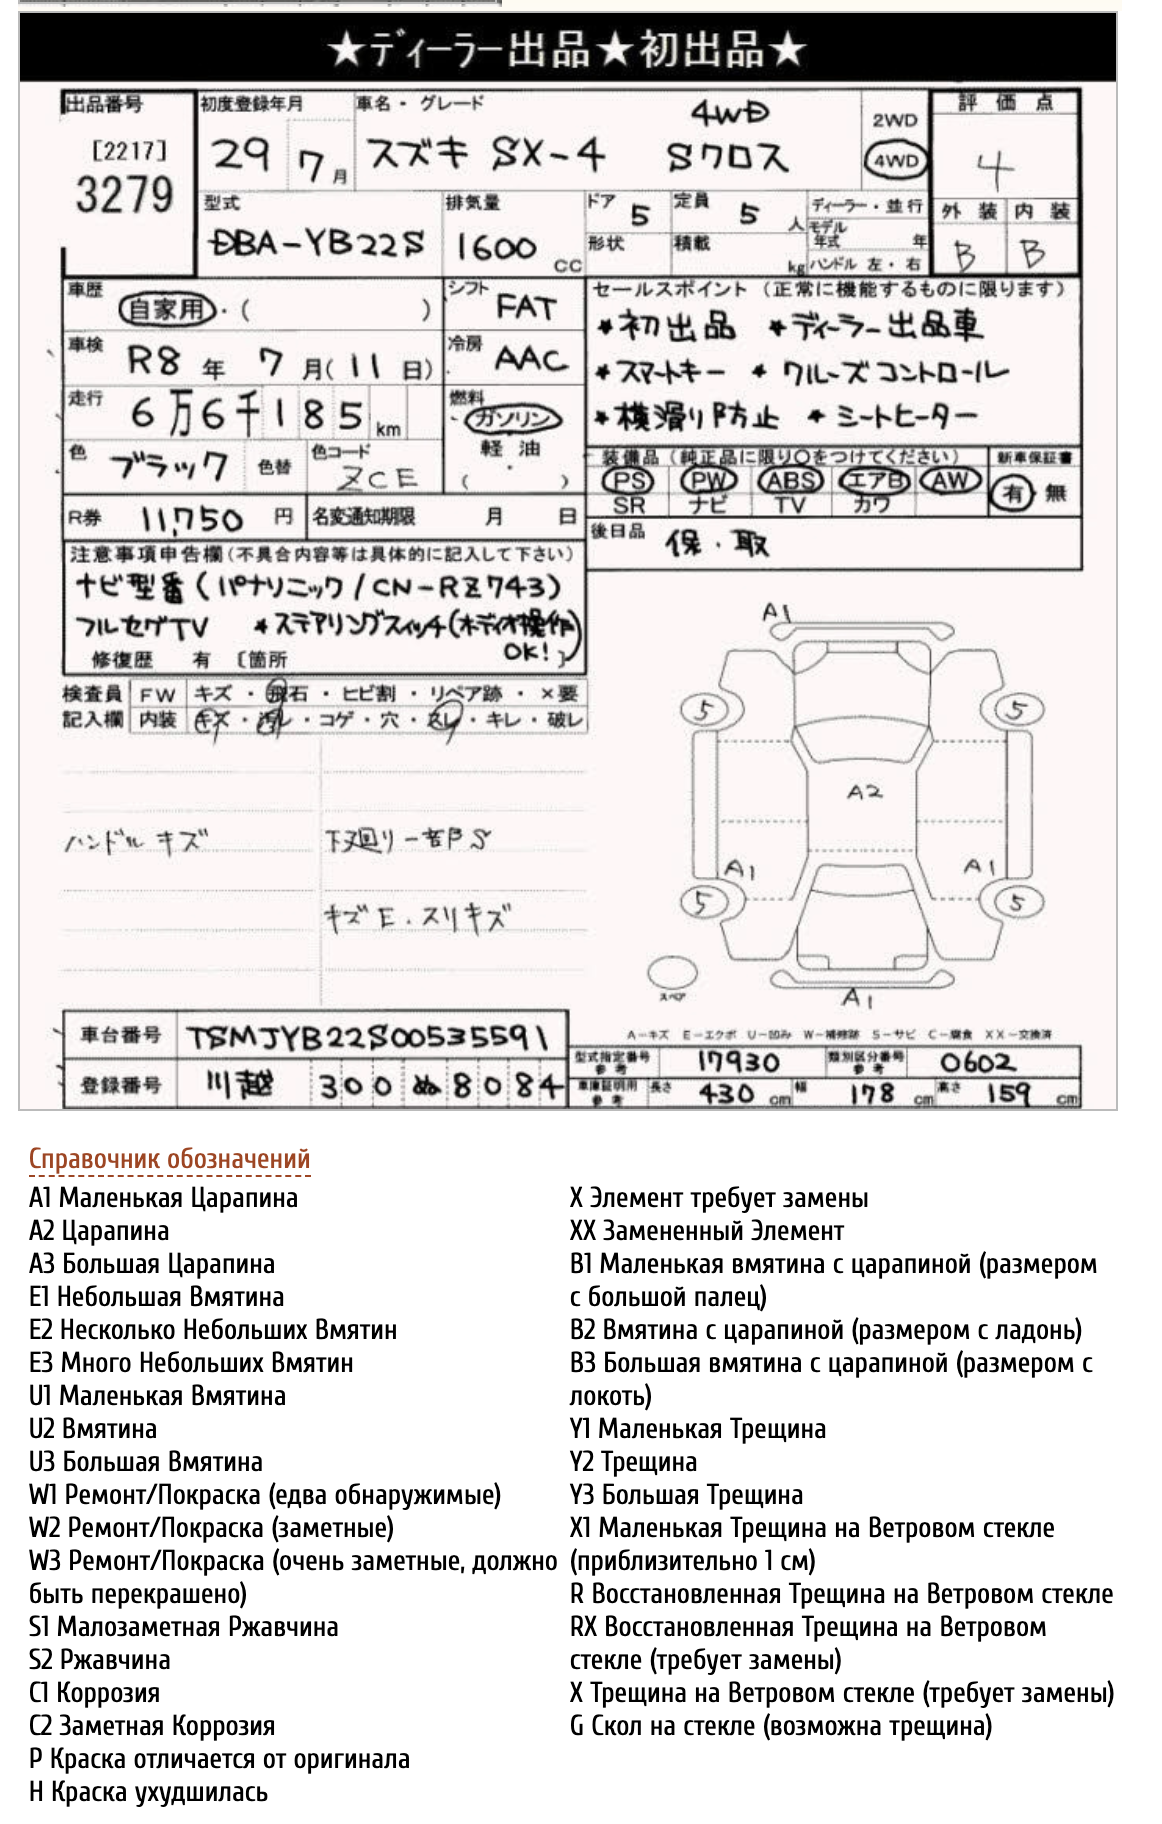 ★ディーラー出品★初出品★
出品番号
[2217]
3279
初度登録年月
29 7月
車名・グレード
4WD
スズキ SX-4 Sクロス
2WD
4WD
評価点
4
外装 内装
B B
型式
DBA-YB22S
排気量
1600 CC
ドア 5
定員 5 人
形状
積載 kg
ディーラー・並行
モデル年式 年
ハンドル 左・右
車歴
自家用・( )
シフト
FAT
車検
R8年 7月(11日)
冷房
AAC
走行
6万6千185 km
燃料
ガソリン
軽油
( )
色
ブラック
色替
色コード
ZCE
R券 11,750 円
名変通知期限 月 日
セールスポイント(正常に機能するものに限ります)
★初出品 ★ディーラー出品車
★スマートキー ★クルーズコントロール
★横滑り防止 ★シートヒーター
装備品(純正品に限り○をつけてください)
新車保証書
PS PW ABS エアB AW
SR ナビ TV カワ
有 無
後日品 保・取
注意事項申告欄(不具合内容等は具体的に記入して下さい)
ナビ型番(パナソニック/CN-RZ743)
フルセグTV ★ステアリングスイッチ(オーディオ操作)
OK!
修復歴 有 〔箇所 〕
検査員 FW キズ・飛石・ヒビ割・リペア跡・×要
記入欄 内装 キズ・汚レ・コゲ・穴・スレ・キレ・破レ
ハンドル キズ
下廻り一部S
キズE.スリキズ
A1
5 5
A2
A1 A1
5 5
スペア
A1
A-キズ E-エクボ U-凹み W-補修跡 S-サビ C-腐食 XX-交換済
車台番号 TSMJYB22S00535591
登録番号 川越 300 ぬ 8084
型式指定番号 参考 17930
類別区分番号 参考 0602
車庫証明用 参考 長さ 430 cm 幅 178 cm 高さ 159 cm
Справочник обозначений
A1 Маленькая Царапина
A2 Царапина
A3 Большая Царапина
E1 Небольшая Вмятина
E2 Несколько Небольших Вмятин
E3 Много Небольших Вмятин
U1 Маленькая Вмятина
U2 Вмятина
U3 Большая Вмятина
W1 Ремонт/Покраска (едва обнаружимые)
W2 Ремонт/Покраска (заметные)
W3 Ремонт/Покраска (очень заметные, должно
быть перекрашено)
S1 Малозаметная Ржавчина
S2 Ржавчина
C1 Коррозия
C2 Заметная Коррозия
P Краска отличается от оригинала
H Краска ухудшилась
X Элемент требует замены
XX Замененный Элемент
B1 Маленькая вмятина с царапиной (размером
с большой палец)
B2 Вмятина с царапиной (размером с ладонь)
B3 Большая вмятина с царапиной (размером с
локоть)
Y1 Маленькая Трещина
Y2 Трещина
Y3 Большая Трещина
X1 Маленькая Трещина на Ветровом стекле
(приблизительно 1 см)
R Восстановленная Трещина на Ветровом стекле
RX Восстановленная Трещина на Ветровом
стекле (требует замены)
X Трещина на Ветровом стекле (требует замены)
G Скол на стекле (возможна трещина)